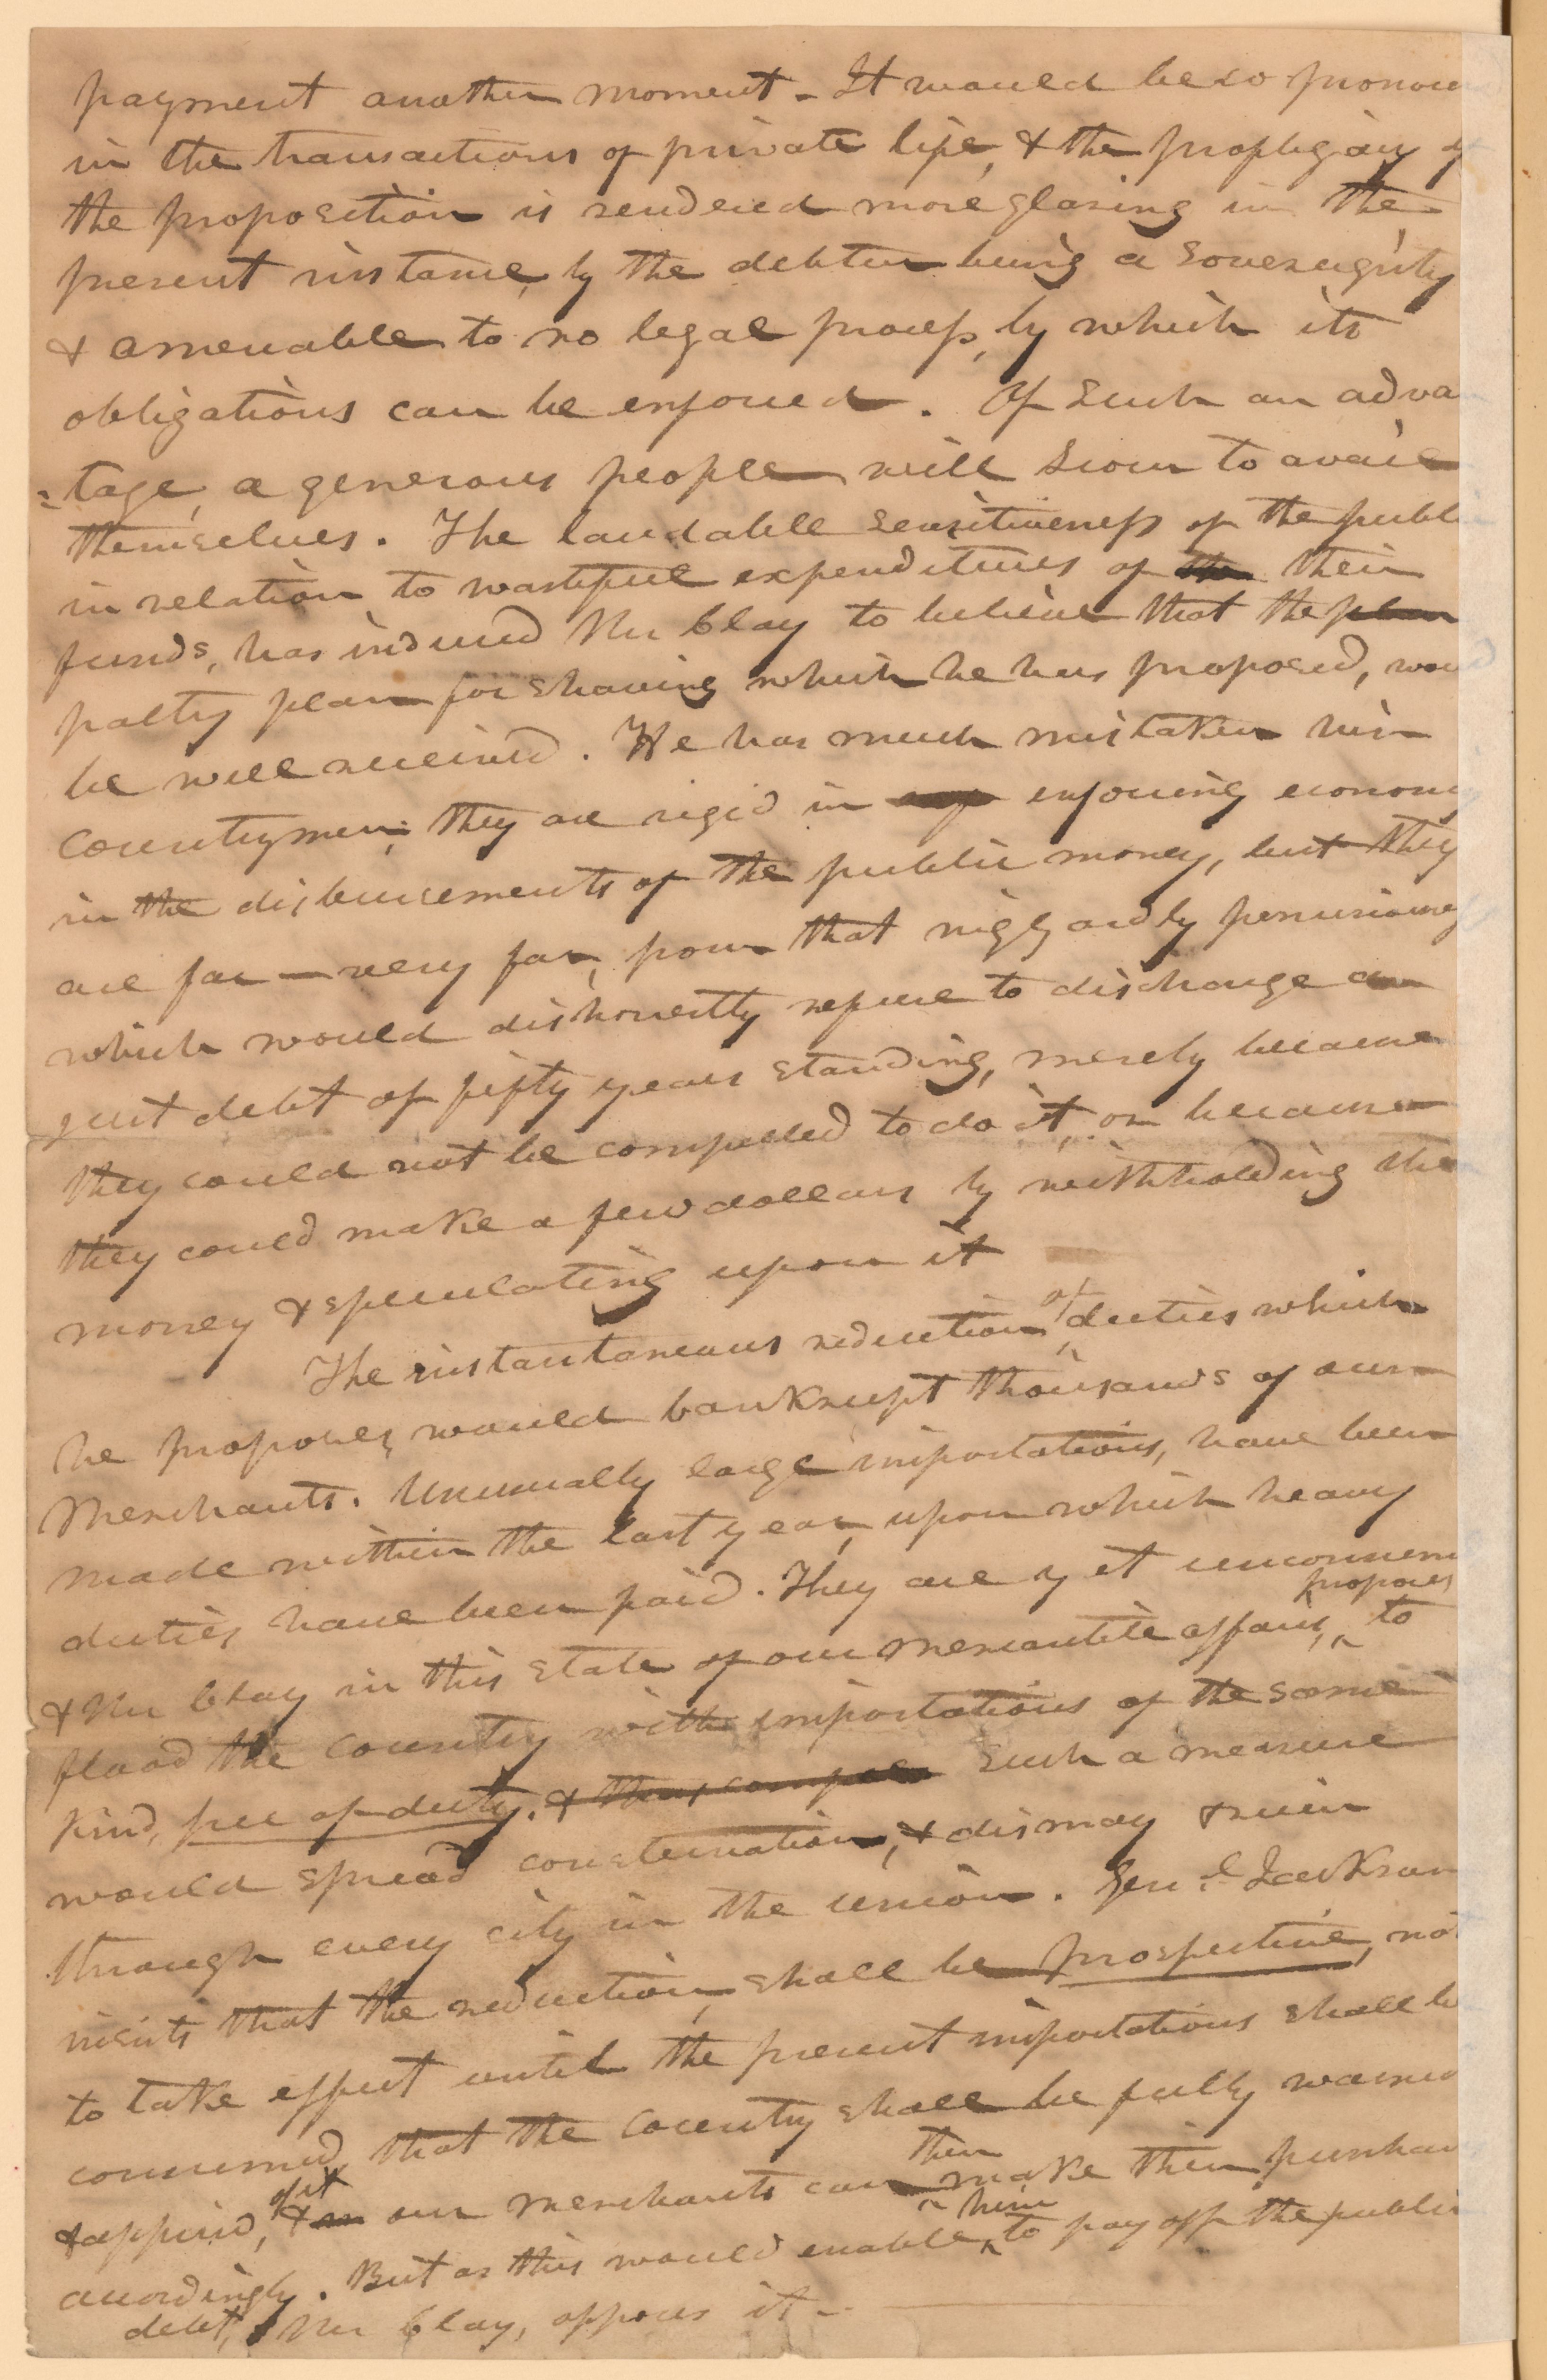 payment another moment - It would be so pronoun
in the transactions of private life, & the profligacy of
the proposition is rendered more glaring in the
present instance, by the debtor being a sovereignty
& amenable to no legal process, by which its
obligations can be enforced. Of such an advan
=tage, a generous people will scorn to avail
themselves. The laudable sensitiveness of the publi
in relation to wasteful expenditures of the their
funds, has induced Mr Clay to believe that the plan
paltry plan for shaving which he has proposed, woul
be well received. He has much mistaken his
countrymen; they are rigid in enforcing economy
in the disbursements of the public money, but they
are far — very far, from that niggardly penuriousne
which would dishonestly refuse to discharge a
just debt of fifty years standing, merely because
they could not be compelled to do it, or because
they could make a few dollars by withholding the
money & speculating upon it
The instantaneous reduction of duties which
he proposes, would bankrupt thousands of our
Merchants. Unusually large importations, have been
made within the last year, upon which heavy
duties have been paid. They are yet unconsum
& Mr Clay in this state of our mercantile affairs, proposes to
flood the country with importations of the same
kind, free of duty. & thus compel Such a measure
would spread consternation, & dismay & ruin
through every city in the union. Genl. Jackson
insists that the reduction, shall be prospective, not
to take effect until the present importations shall b
consumed, that the country shall be fully warned
& apprised, of it & our merchants can then make their purchas
accordingly. But as this would enable him to pay off the public
debt, Mr Clay, opposes it -